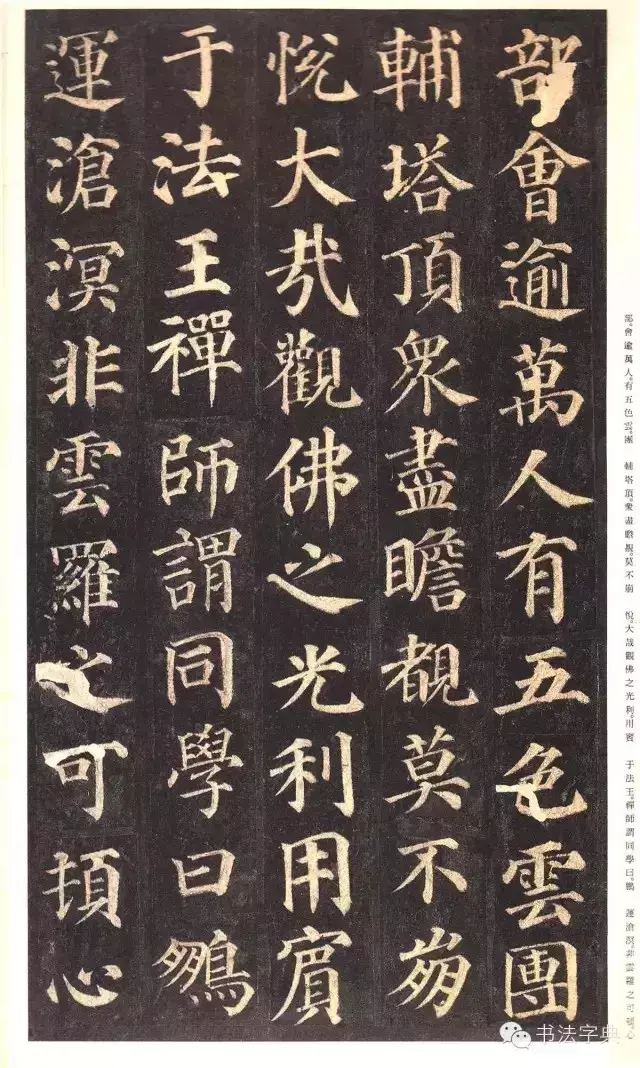 部會逾萬人有五色雲團
輔塔頂眾盡瞻覩莫不崩
悅大哉觀佛之光利用賓
于法王禪師謂同學曰鵬
運滄溟非雲羅之可頓心
部會逾萬人。有五色雲。團 輔塔頂。衆盡瞻覩。莫不崩 悅。大哉觀佛之光利。用賓 于法王。禪師謂同學曰。鵬 運滄溟。非雲羅之可頓。心
书法字典